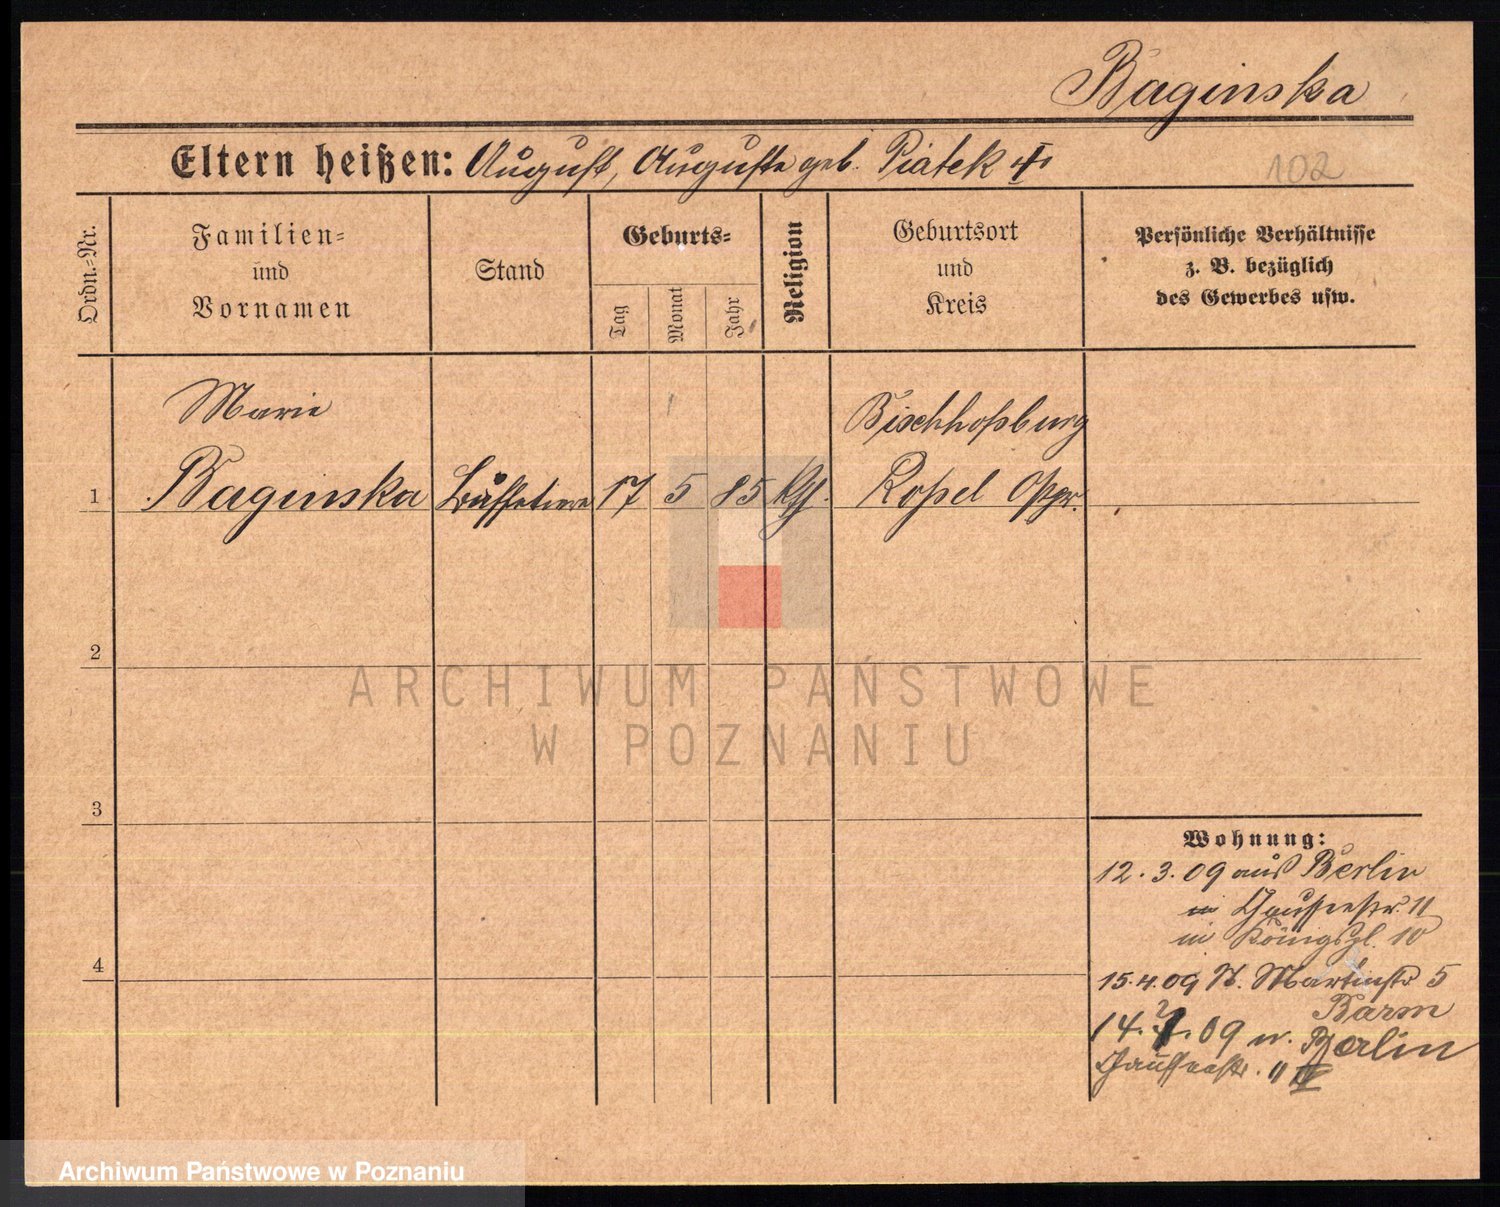 Baginska
Eltern heißen: August, Auguste geb. Piatek
102
Ordn.=Nr.
Familien=
und
Vornamen
Stand
Geburts=
Tag
Monat
Jahr
Religion
Geburtsort
und
Kreis
Persönliche Verhältnisse
z. B. bezüglich
des Gewerbes usw.
Marie
Bischhofsburg
1 Baginska Büffetiere 17 5 85 Kth. Roßel Ostpr.
2
ARCHIWUM PAŃSTWOWE
W POZNANIU
3
4
Wohnung:
12.3.09 aus Berlin
in Chausseestr. 11
in Königspl. 10
15.4.09 N. Martinstr 5
Barm
14. 09 n. Berlin
Chausseestr. 11 IV
Archiwum Państwowe w Poznaniu